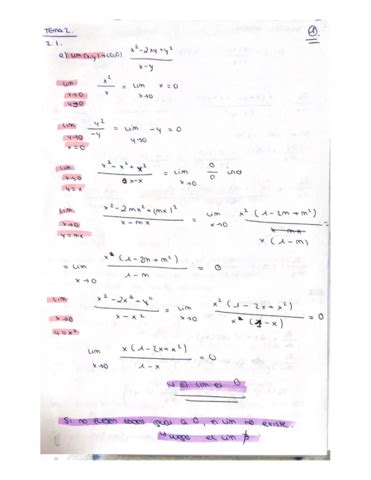 TEMA 2.
①
2.1.
a) lim (x,y)→(0,0) x²-2xy+y² / x-y
lim x→0 y=0 x²/x = lim x→0 x = 0
lim y→0 x=0 y²/-y = lim y→0 -y = 0
lim x→0 y=x / x-x = lim x→0 0/0 ind
lim x→0 y=mx x²-2mx²+(mx)² / x-mx = lim x→0 x²(1-2m+m²) / x(1-m) =
= lim x→0 x(1-2m+m²) / 1-m = 0
lim x→0 y=x² x²-2x³+x⁴ / x-x² = lim x→0 x²(1-2x+x²) / x(1-x) = 0
lim x→0 x(1-2x+x²) / 1-x = 0
El lim es 0
Si no fuesen todos igual a 0, el lim no existe.
luego el lim ∄